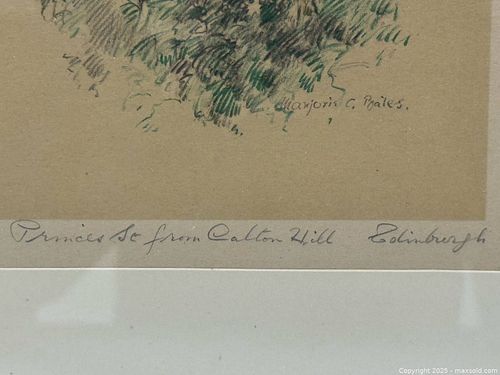 Marjorie C. Bates.
Princes St from Calton Hill Edinburgh
Copyright 2025 - maxsold.com